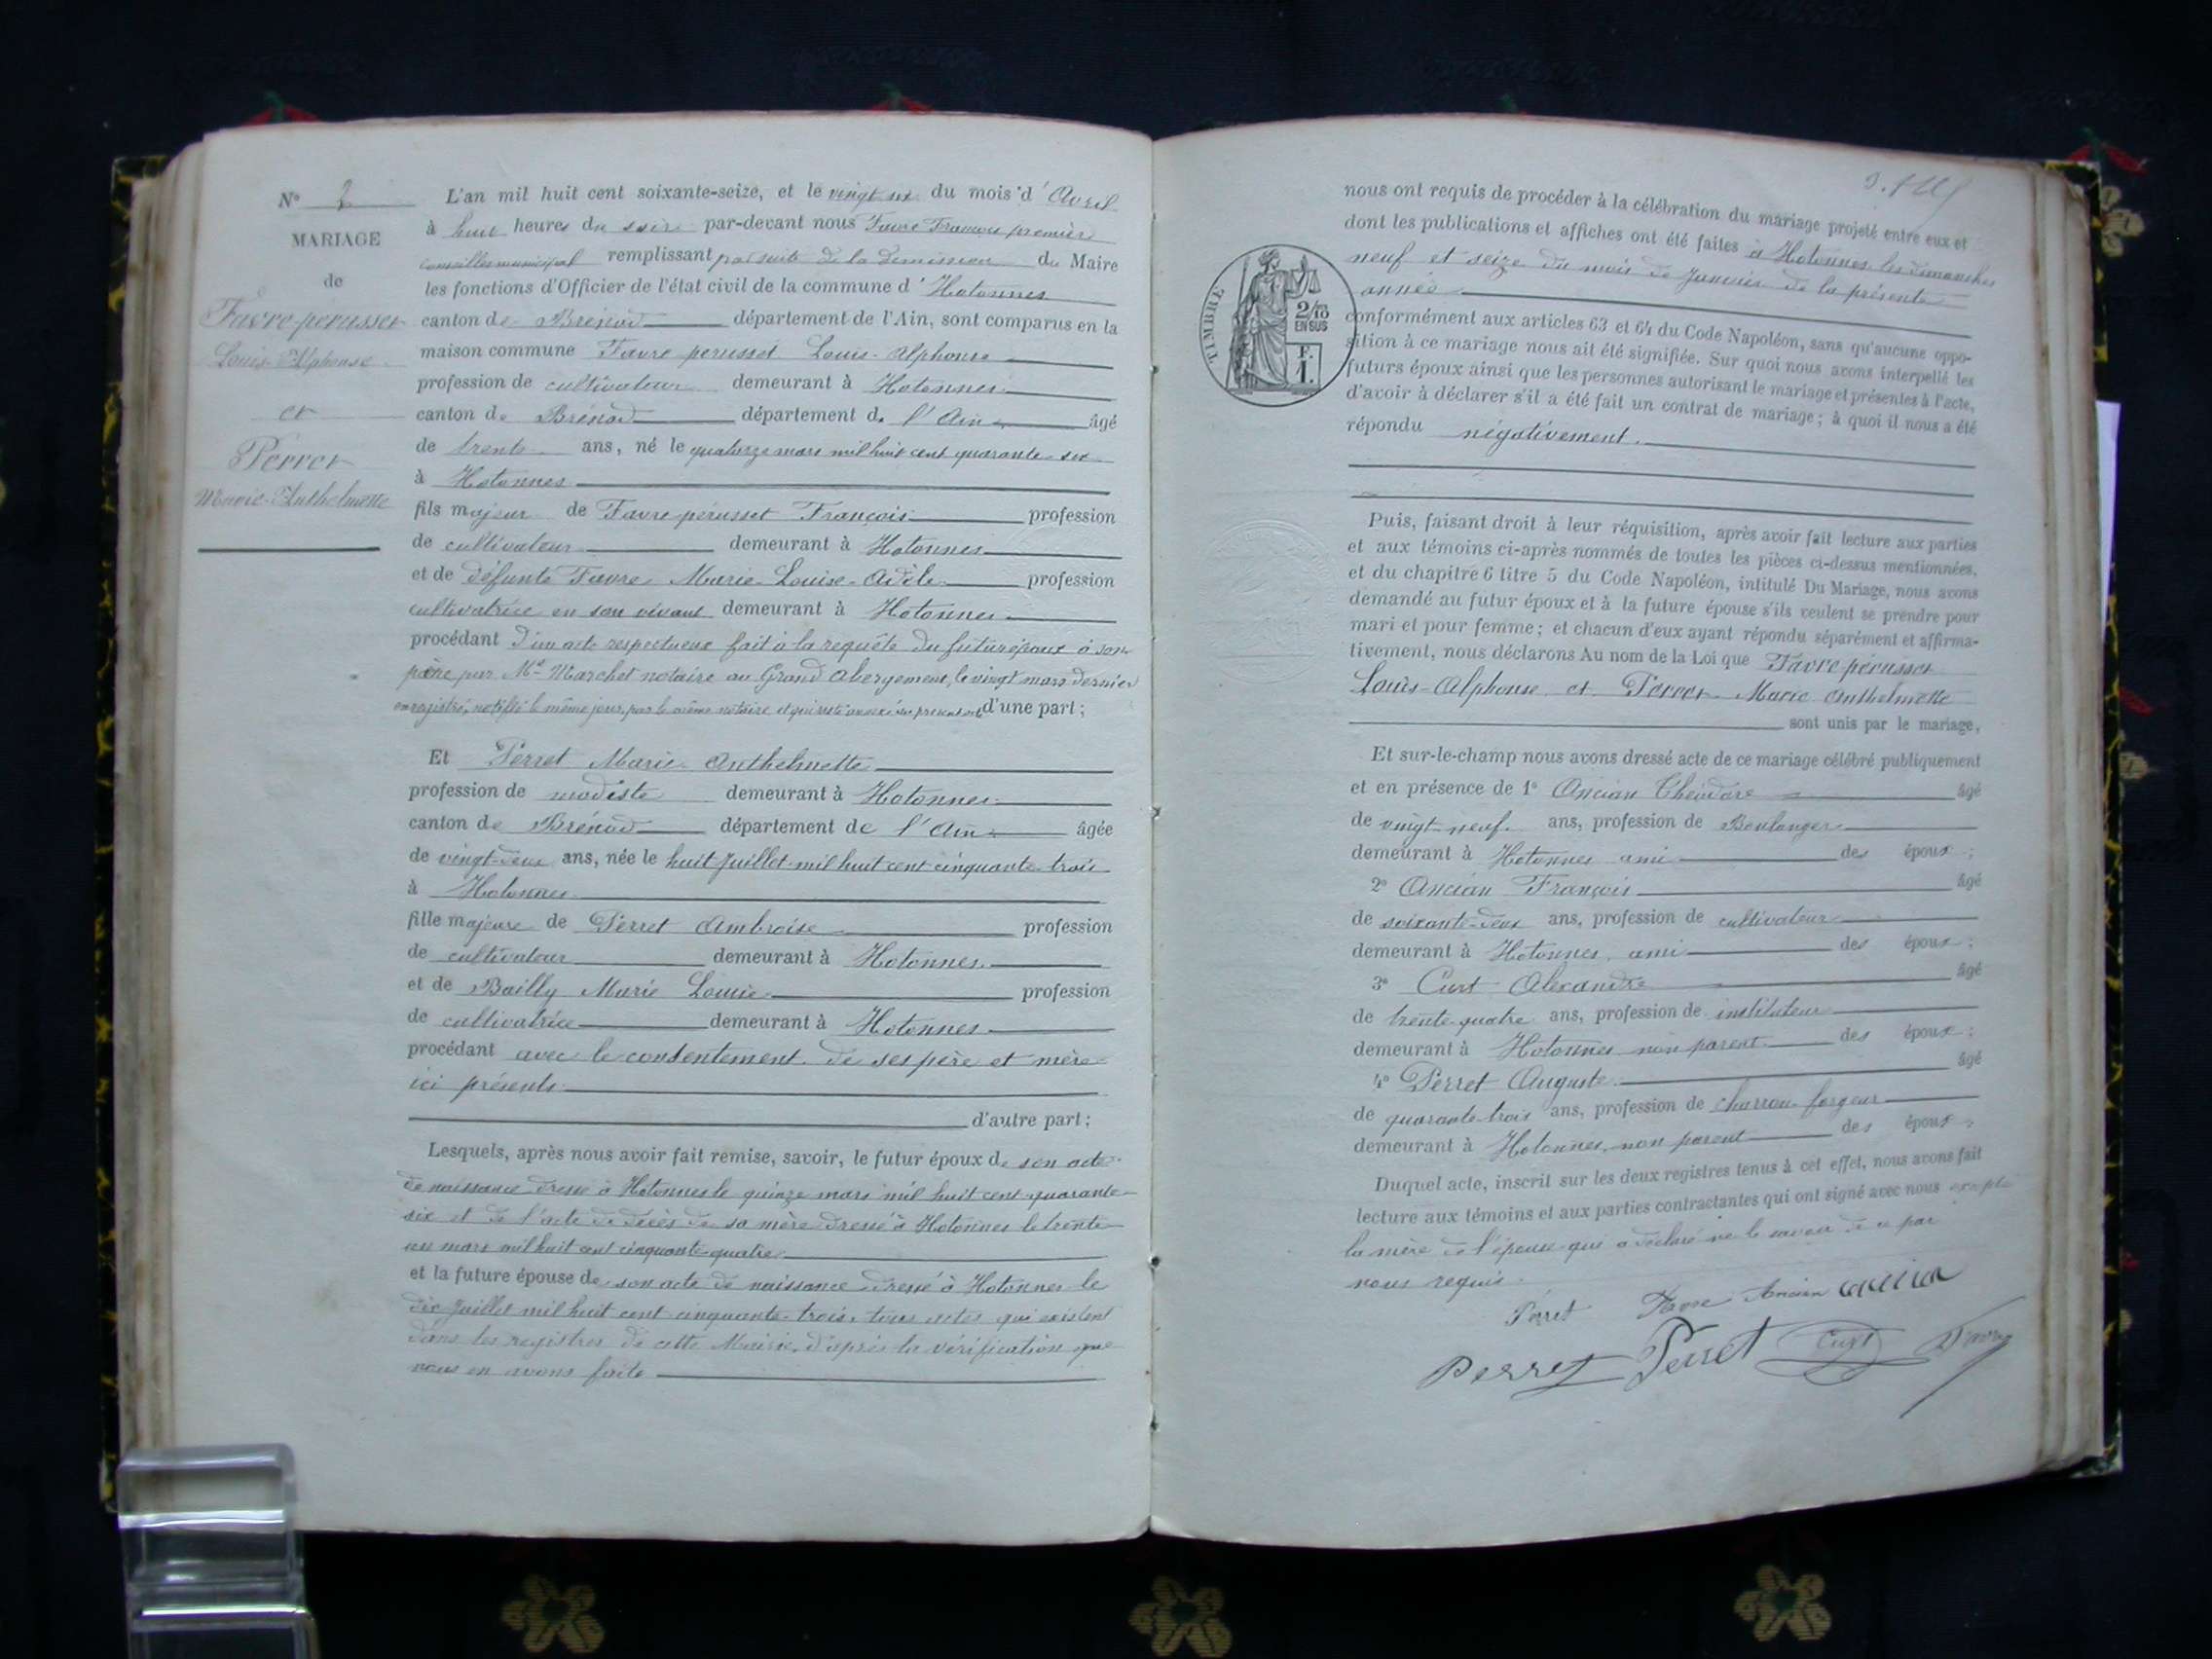 N° 2
MARIAGE
de
Favre-perusset
Louis-Alphonse
et
Perret
Marie-Anthelmette
L'an mil huit cent soixante-seize, et le vingt six du mois d'Avril
à huit heures du soir par-devant nous Favre François premier
conseiller municipal remplissant par suite de la démission du Maire
les fonctions d'Officier de l'état civil de la commune d'Hotonnes
canton de Brénod département de l'Ain, sont comparus en la
maison commune Favre-perusset Louis-Alphonse
profession de cultivateur demeurant à Hotonnes
canton de Brénod département de l'Ain âgé
de trente ans, né le quatorze mars mil huit cent quarante-six
à Hotonnes
fils majeur de Favre-pérusset François profession
de cultivateur demeurant à Hotonnes
et de défunte Favre Marie-Louise-Adèle profession
cultivatrice en son vivant demeurant à Hotonnes
procédant d'un acte respectueux fait à la requête du futur époux à son
père par Me Marchet notaire au Grand Abergement, le vingt mars dernier
enregistré, notifié le même jour, par le même notaire et qui reste annexé au présent acte d'une part;
Et Perret Marie Anthelmette
profession de modiste demeurant à Hotonnes
canton de Brénod département de l'Ain âgée
de vingt-deux ans, née le huit Juillet mil huit cent cinquante trois
à Hotonnes
fille majeure de Perret Ambroise profession
de cultivateur demeurant à Hotonnes
et de Bailly Marie Louise profession
de cultivatrice demeurant à Hotonnes
procédant avec le consentement de ses père et mère
ici présents
d'autre part;
Lesquels, après nous avoir fait remise, savoir, le futur époux de son acte
de naissance dressé à Hotonnes le quinze mars mil huit cent quarante-
six et de l'acte de décès de sa mère dressé à Hotonnes le trente
un mars mil huit cent cinquante-quatre
et la future épouse de son acte de naissance dressé à Hotonnes le
dix Juillet mil huit cent cinquante-trois, tous actes qui existent
dans les registres de cette Mairie, d'après la vérification que
nous en avons faite
nous ont requis de procéder à la célébration du mariage projeté entre eux et
dont les publications et affiches ont été faites à Hotonnes les dimanches
neuf et seize du mois de Janvier de la présente
année
TIMBRE
2/10
EN SUS
F.
1.
conformément aux articles 63 et 64 du Code Napoléon, sans qu'aucune oppo-
sition à ce mariage nous ait été signifiée. Sur quoi nous avons interpellé les
futurs époux ainsi que les personnes autorisant le mariage et présentes à l'acte,
d'avoir à déclarer s'il a été fait un contrat de mariage; à quoi il nous a été
répondu négativement.
Puis, faisant droit à leur réquisition, après avoir fait lecture aux parties
et aux témoins ci-après nommés de toutes les pièces ci-dessus mentionnées,
et du chapitre 6 titre 5 du Code Napoléon, intitulé Du Mariage, nous avons
demandé au futur époux et à la future épouse s'ils veulent se prendre pour
mari et pour femme; et chacun d'eux ayant répondu séparément et affirma-
tivement, nous déclarons Au nom de la Loi que Favre-pérusset
Louis-Alphonse et Perret Marie Anthelmette
sont unis par le mariage,
Et sur-le-champ nous avons dressé acte de ce mariage célébré publiquement
et en présence de 1° Ancian Théodore âgé
de vingt-neuf ans, profession de Boulanger
demeurant à Hotonnes ami des époux;
2° Ancian François âgé
de soixante-deux ans, profession de cultivateur
demeurant à Hotonnes, ami des époux;
3° Curt Alexandre âgé
de trente-quatre ans, profession de instituteur
demeurant à Hotonnes non parent des époux;
4° Perret Auguste âgé
de quarante-trois ans, profession de charron-forgeur
demeurant à Hotonnes, non parent des époux;
Duquel acte, inscrit sur les deux registres tenus à cet effet, nous avons fait
lecture aux témoins et aux parties contractantes qui ont signé avec nous excepté
la mère de l'épouse qui a déclaré ne le savoir de ce par
nous requis.
Perret Favre Ancian Ancian
Perret Perret Curt Favre